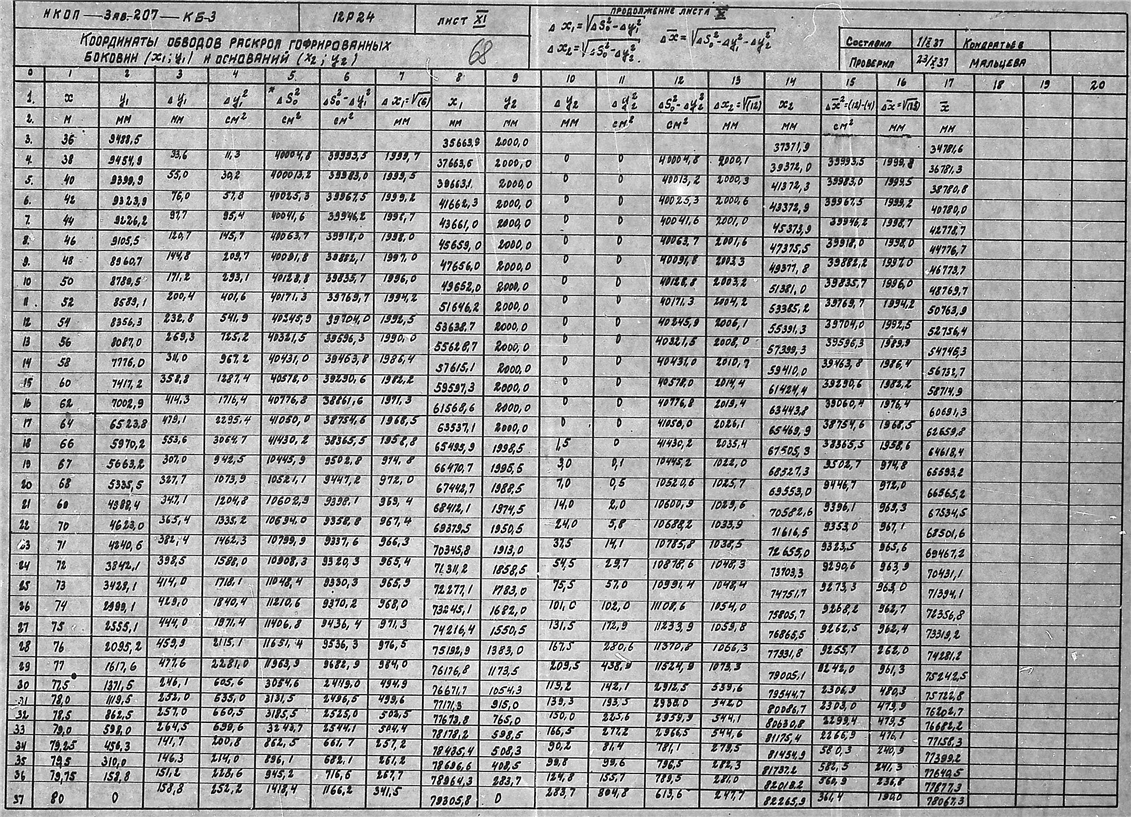 НКОП — Зав-207 — КБ-3 12Р24 ЛИСТ XI ПРОДОЛЖЕНИЕ ЛИСТА X
КООРДИНАТЫ ОБВОДОВ РАСКРОЯ ГОФРИРОВАННЫХ
БОКОВИН (x₁; y₁) И ОСНОВАНИЙ (x₂; y₂)
68
Δx₁=√ΔS₀²-Δy₁²
Δx₂=√ΔS₀²-Δy₂²
Δx̅=√ΔS₀²-Δy₁²-Δy₂²
СОСТАВИЛ 37 КОНДРАТЬЕВ
ПРОВЕРИЛ 37 МАЛЬЦЕВА
0 1 2 3 4 5 6 7 8 9 10 11 12 13 14 15 16 17 18 19 20
1. x y₁ Δy₁ Δy₁² ΔS₀² ΔS₀²-Δy₁² Δx₁=√(6) x₁ y₂ Δy₂ Δy₂² ΔS₀²-Δy₂² Δx₂=√(12) x₂ Δx̅²=(12)-(4) x̅
2. м мм мм см² см² см² мм мм мм мм см² см² мм мм см² мм мм
3. 36 9488,5 35663,9 2000,0 37371,9 34781,6
4. 38 9454,9 33,6 11,3 40004,8 39993,5 1999,7 37663,6 2000,0 0 0 40004,8 2000,1 39372,0 39993,5 1999,8 36781,3
5. 40 9399,9 55,0 30,2 40013,2 39983,0 1999,5 39663,1 2000,0 0 0 40013,2 2000,3 41372,3 39983,0 1999,5 38780,8
6. 42 9323,9 76,0 57,8 40025,3 39967,5 1999,2 41662,3 2000,0 0 0 40025,3 2000,6 43372,9 39967,5 1999,2 40780,0
7. 44 9226,2 97,7 95,4 40041,6 39946,2 1998,7 43661,0 2000,0 0 0 40041,6 2001,0 45373,9 39946,2 1998,7 42778,7
8. 46 9105,5 120,7 145,7 40063,7 39918,0 1998,0 45659,0 2000,0 0 0 40063,7 2001,6 47375,5 39918,0 1998,0 44776,7
9. 48 8960,7 144,8 209,7 40091,8 39882,1 1997,0 47656,0 2000,0 0 0 40091,8 2002,3 49377,8 39882,2 1997,0 46773,7
10 50 8789,5 171,2 293,1 40128,8 39835,7 1996,0 49652,0 2000,0 0 0 40128,8 2003,2 51381,0 39835,7 1996,0 48769,7
11 52 8589,1 200,4 401,6 40171,3 39769,7 1994,2 51646,2 2000,0 0 0 40171,3 2004,2 53385,2 39769,7 1994,2 50763,9
12 54 8356,3 232,8 541,9 40245,9 39704,0 1992,5 53638,7 2000,0 0 0 40245,9 2006,1 55391,3 39704,0 1992,5 52756,4
13 56 8087,0 269,3 725,2 40321,5 39596,3 1990,0 55628,7 2000,0 0 0 40321,5 2008,0 57399,3 39596,3 1989,9 54746,3
14 58 7776,0 311,0 967,2 40431,0 39463,8 1986,4 57615,1 2000,0 0 0 40431,0 2010,7 59410,0 39463,8 1986,4 56732,7
15 60 7417,2 358,8 1287,4 40578,0 39290,6 1982,2 59597,3 2000,0 0 0 40578,0 2014,4 61424,4 39290,6 1982,2 58714,9
16 62 7002,9 414,3 1716,4 40776,8 38861,6 1971,3 61568,6 2000,0 0 0 40776,8 2019,4 63443,8 39060,4 1976,4 60691,3
17 64 6523,8 479,1 2295,4 41050,0 38754,6 1968,5 63537,1 2000,0 0 0 41050,0 2026,1 65469,9 38754,6 1968,5 62659,8
18 66 5970,2 553,6 3064,7 41430,2 38365,5 1958,8 65495,9 1998,5 1,5 0 41430,2 2035,4 67505,3 38365,5 1958,6 64618,4
19 67 5663,2 307,0 942,5 10445,9 9502,8 974,8 66470,7 1995,5 3,0 0,1 10445,2 1022,0 68527,3 9502,7 974,8 65593,2
20 68 5335,5 327,7 1073,9 10521,1 9447,2 972,0 67442,7 1988,5 7,0 0,5 10520,6 1025,7 69553,0 9446,7 972,0 66565,2
21 69 4988,4 347,1 1204,8 10602,9 9398,1 969,4 68412,1 1974,5 14,0 2,0 10600,9 1029,6 70582,6 9396,1 969,3 67534,5
22 70 4623,0 365,4 1335,2 10694,0 9358,8 967,4 69379,5 1950,5 24,0 5,8 10688,2 1033,9 71616,5 9353,0 967,1 68501,6
23 71 4240,6 382,4 1462,3 10799,9 9337,6 966,3 70345,8 1913,0 37,5 14,1 10785,8 1038,5 72655,0 9323,5 965,6 69467,2
24 72 3842,1 398,5 1588,0 10908,3 9320,3 965,4 71311,2 1858,5 54,5 29,7 10878,6 1048,3 73703,3 9290,6 963,9 70431,1
25 73 3428,1 414,0 1718,1 11048,4 9330,3 965,9 72277,1 1783,0 75,5 57,0 10991,4 1048,4 74751,7 9273,3 963,0 71394,1
26 74 2999,1 429,0 1840,4 11210,6 9370,2 968,0 73245,1 1682,0 101,0 102,0 11108,6 1054,0 75805,7 9268,2 962,7 72356,8
27 75 2555,1 444,0 1971,4 11406,8 9436,4 971,3 74216,4 1550,5 131,5 172,9 11233,9 1059,8 76865,5 9262,5 962,4 73319,2
28 76 2095,2 459,9 2115,1 11651,4 9536,3 976,5 75192,9 1383,0 167,5 280,6 11370,8 1066,3 77931,8 9255,7 262,0 74281,2
29 77 1617,6 477,6 2281,0 11963,9 9682,9 984,0 76176,8 1173,5 209,5 438,9 11524,9 1073,3 79005,1 9242,0 961,3 75242,5
30 77,5 1371,5 246,1 605,6 3054,6 2449,0 494,9 76671,7 1054,3 119,2 142,1 2912,5 539,6 79544,7 2306,9 480,3 75722,8
31 78,0 1119,5 252,0 635,0 3131,5 2496,5 499,6 77171,3 915,0 139,3 193,5 2938,0 542,0 80086,7 2303,0 479,9 76202,7
32 78,5 862,5 257,0 660,5 3185,5 2525,0 502,5 77673,8 765,0 150,0 225,6 2959,9 544,1 80630,8 2299,4 479,5 76682,2
33 79,0 598,0 264,5 699,6 3243,7 2544,1 504,4 78178,2 598,5 166,5 277,2 2966,5 544,6 81175,4 2266,9 476,1 77158,3
34 79,25 456,3 141,7 200,8 862,5 661,7 257,2 78435,4 508,3 90,2 81,4 781,1 279,5 81454,9 580,3 240,9 77399,2
35 79,5 310,0 146,3 214,0 896,1 682,1 261,2 78696,6 408,5 99,8 99,6 796,5 282,3 81737,2 582,5 241,3 77640,5
36 79,75 158,8 151,2 228,6 945,2 716,6 267,7 78964,3 283,7 124,8 155,7 789,5 281,0 82018,2 560,9 236,8 77877,3
37 80 0 158,8 252,2 1418,4 1166,2 341,5 79305,8 0 283,7 804,8 613,6 247,7 82265,9 361,4 190,0 78067,3